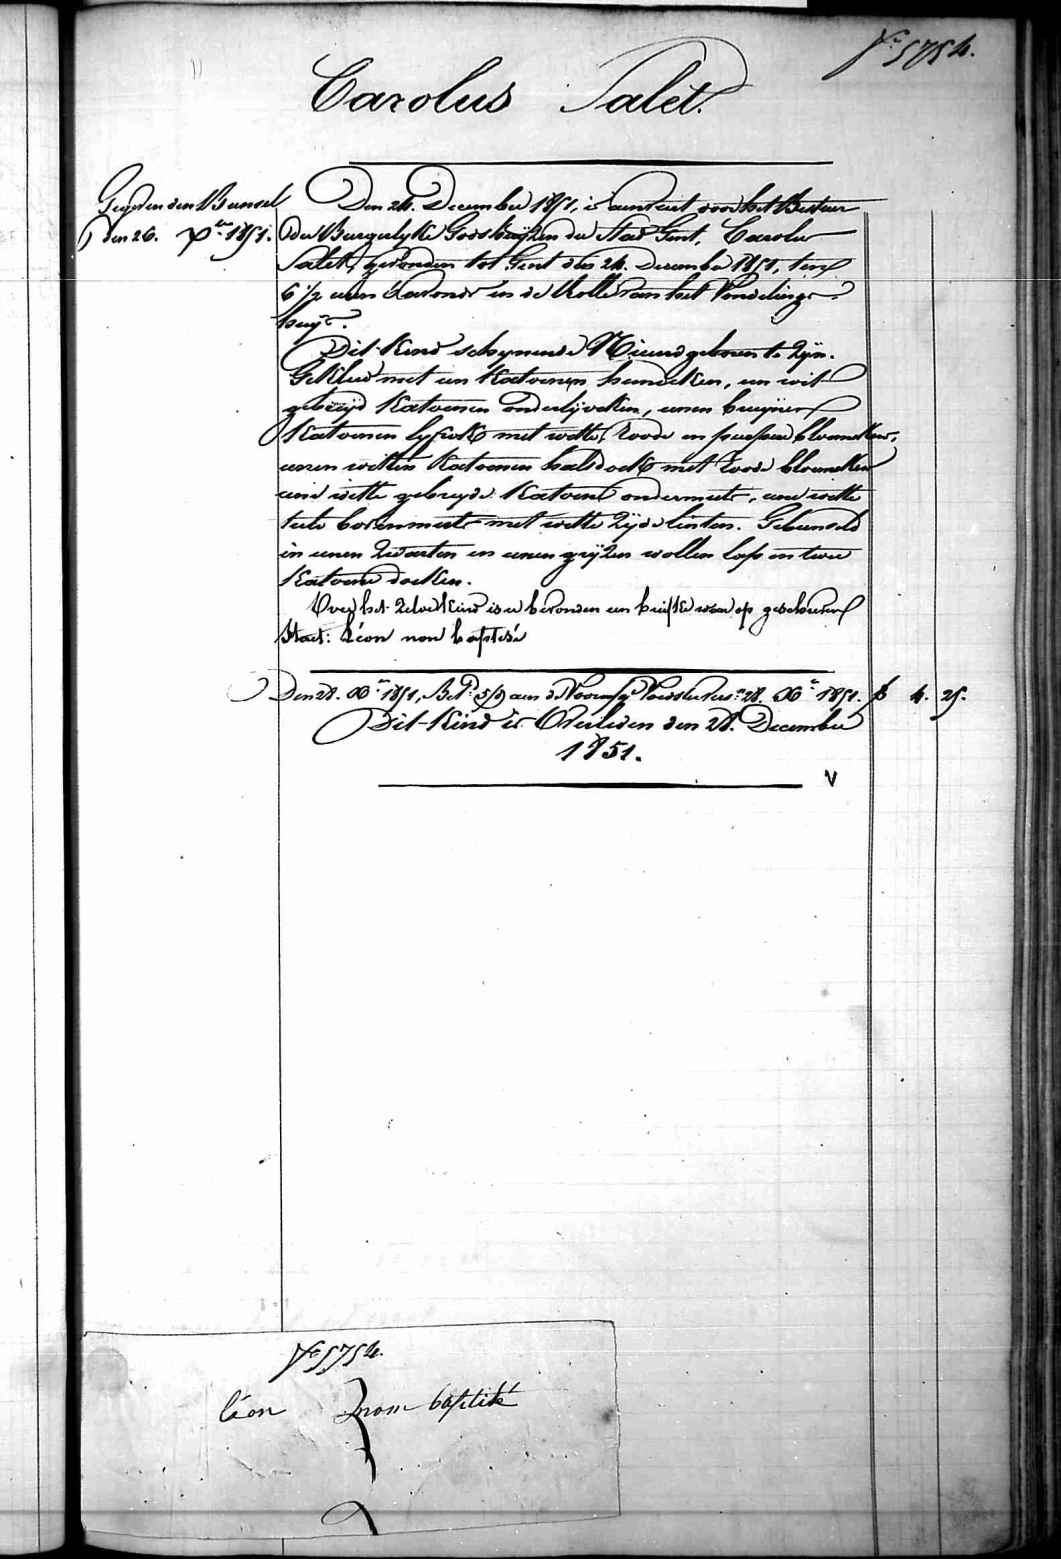 N° 5754.
Carolus Salet.
den 26. Xbre 1851.
Den 24. December 1851, is aenveert door het Bestuer
der Burgerlyke Godshuijzen der Stad Gent, Carolus
Salet, gevonden tot Gent den 24. December 1851, ten
6 1/2 uren s'avonds in de Rolle van het Vondelings-
huijs.
Dit Kind schynende Nieuwgeboren te Zijn.
Gekleed met een Katoenen hemdeken, een wit
gebreijd Katoenen onderlijveken, eenen bruijnen
Katoenen lyfrok met witte, Roode en purpere bloemekens,
eenen witten Katoenen halsdoek met roode bloemeken
eene witte gebreyde Katoene ondermuts, eene witte
tule bovenmuts met witte Zijde linten. Gebunseld
in eenen Zwarten en eenen grijzen wollen lap en twee
Katoene doeken.
Over het Zelve Kind is er bevonden een briefke waer op geschreven
Staet: Léon non baptisé
Den 28. Xbre 1851, Bet. 5/9 aen de Voedster 28. Xbre 1851. f 4. 25.
Dit Kind is Overleden den 28. December
1851.
V
N° 5754.
léon non baptisé